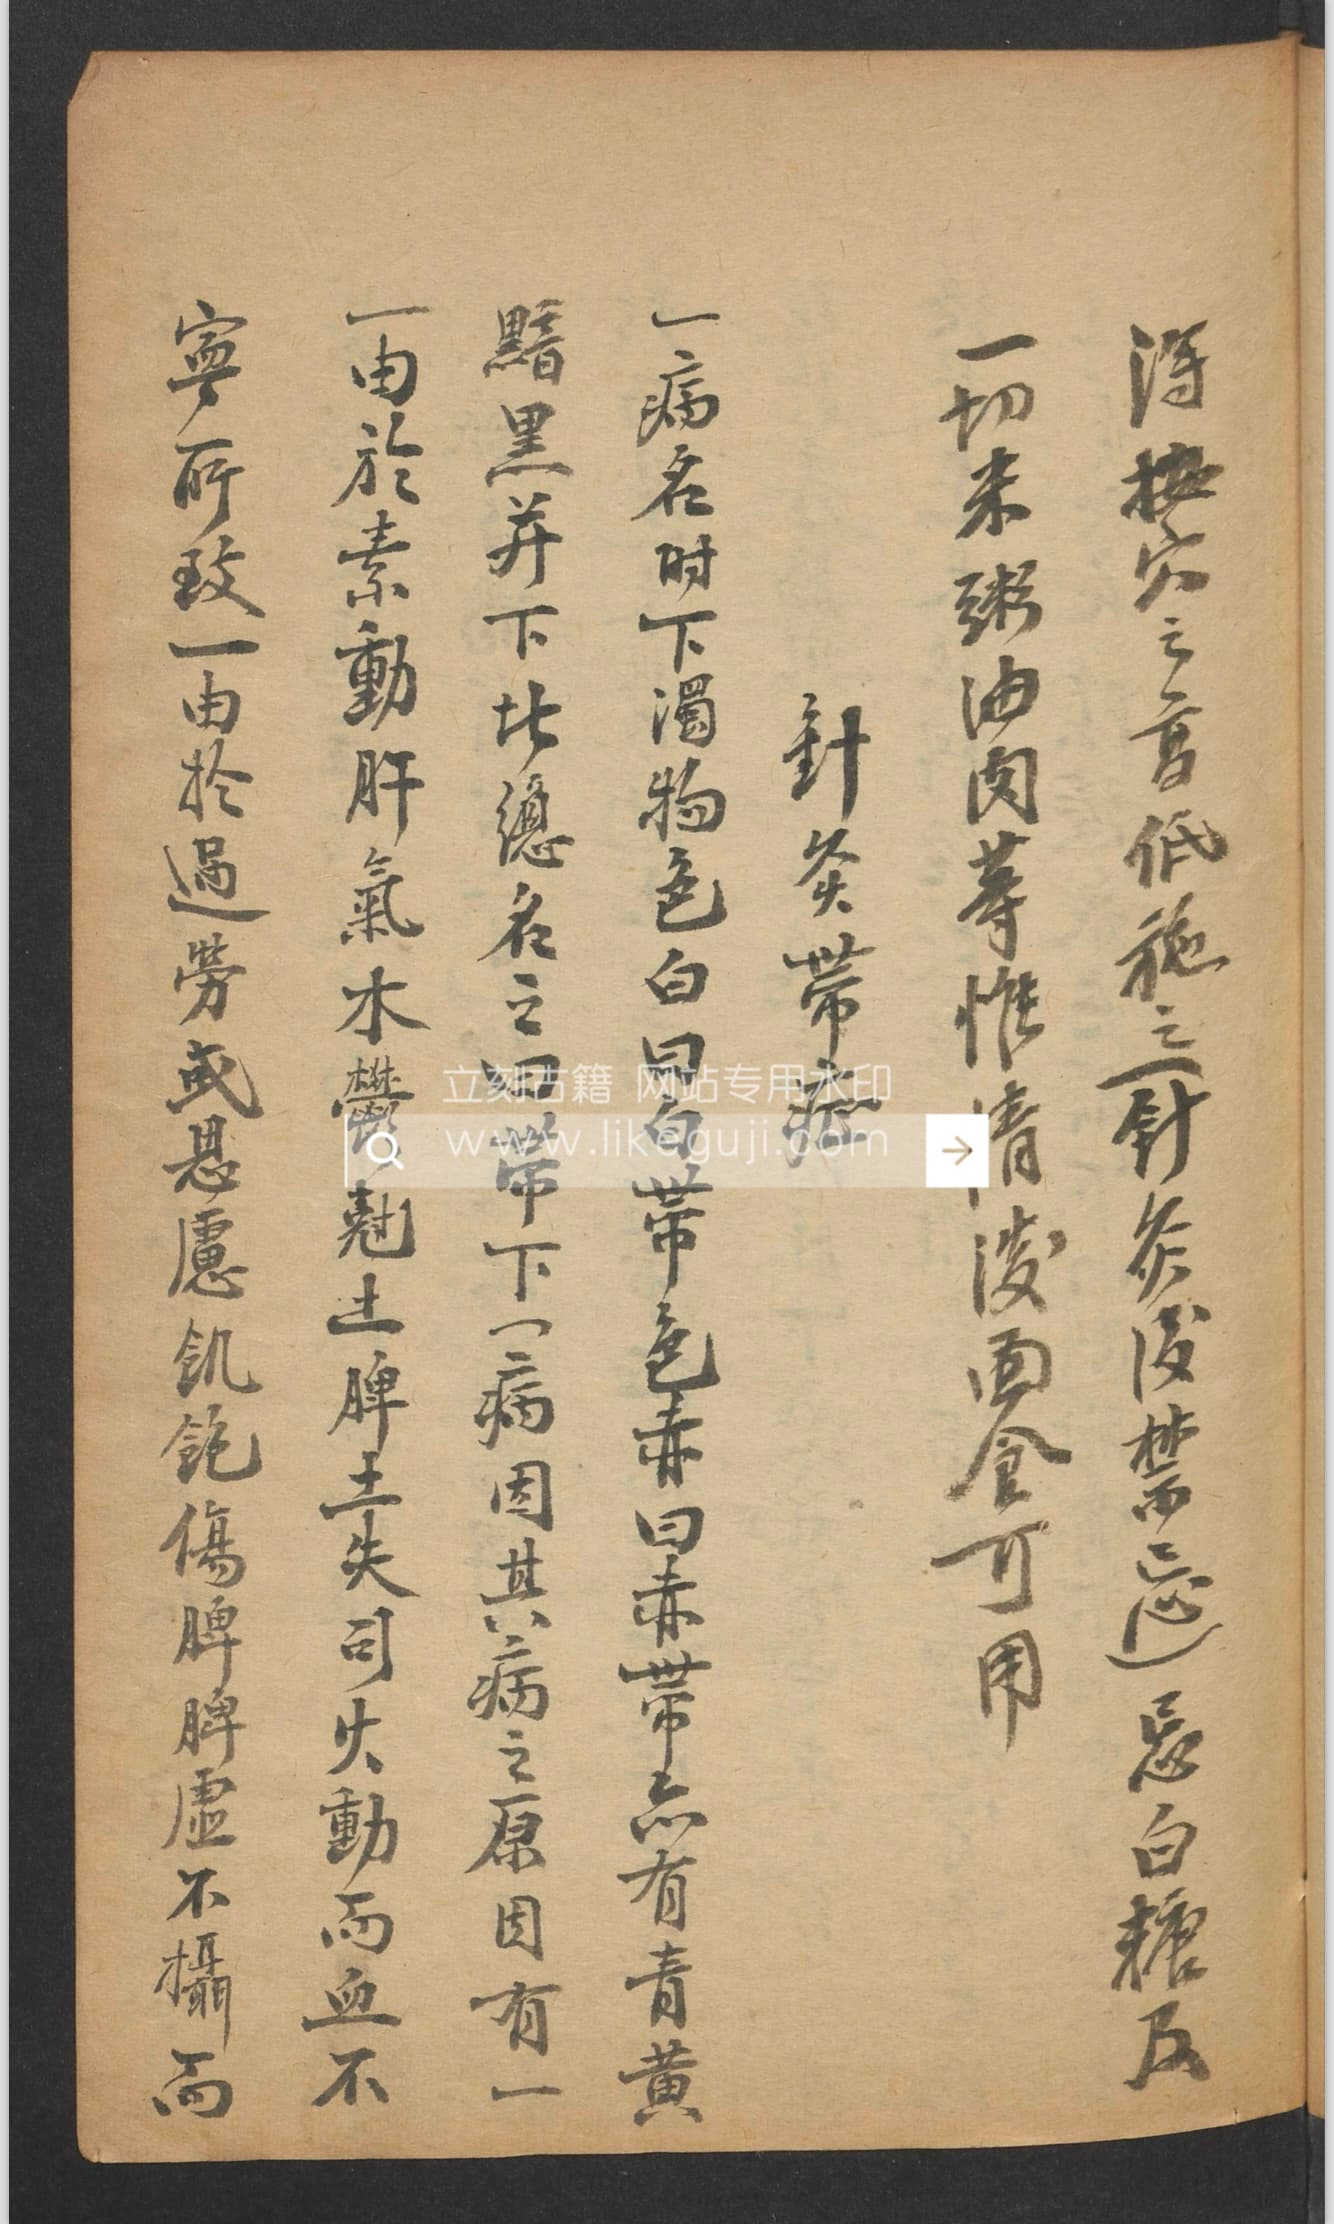 得按穴之高低施之針灸後禁忌忌白糖及
一切米粥油肉等惟清淡面食可用
針灸帶症
一病名時下濁物色白曰白帶色赤曰赤帶亦有青黃
黯黑并下此總名之曰帶下一病因其病之原因有一
一由於素動肝氣木鬱尅土脾土失司火動而血不
寧所致一由於過勞或思慮飢飽傷脾脾虛不攝而
立刻古籍 网站专用水印
www.likeguji.com